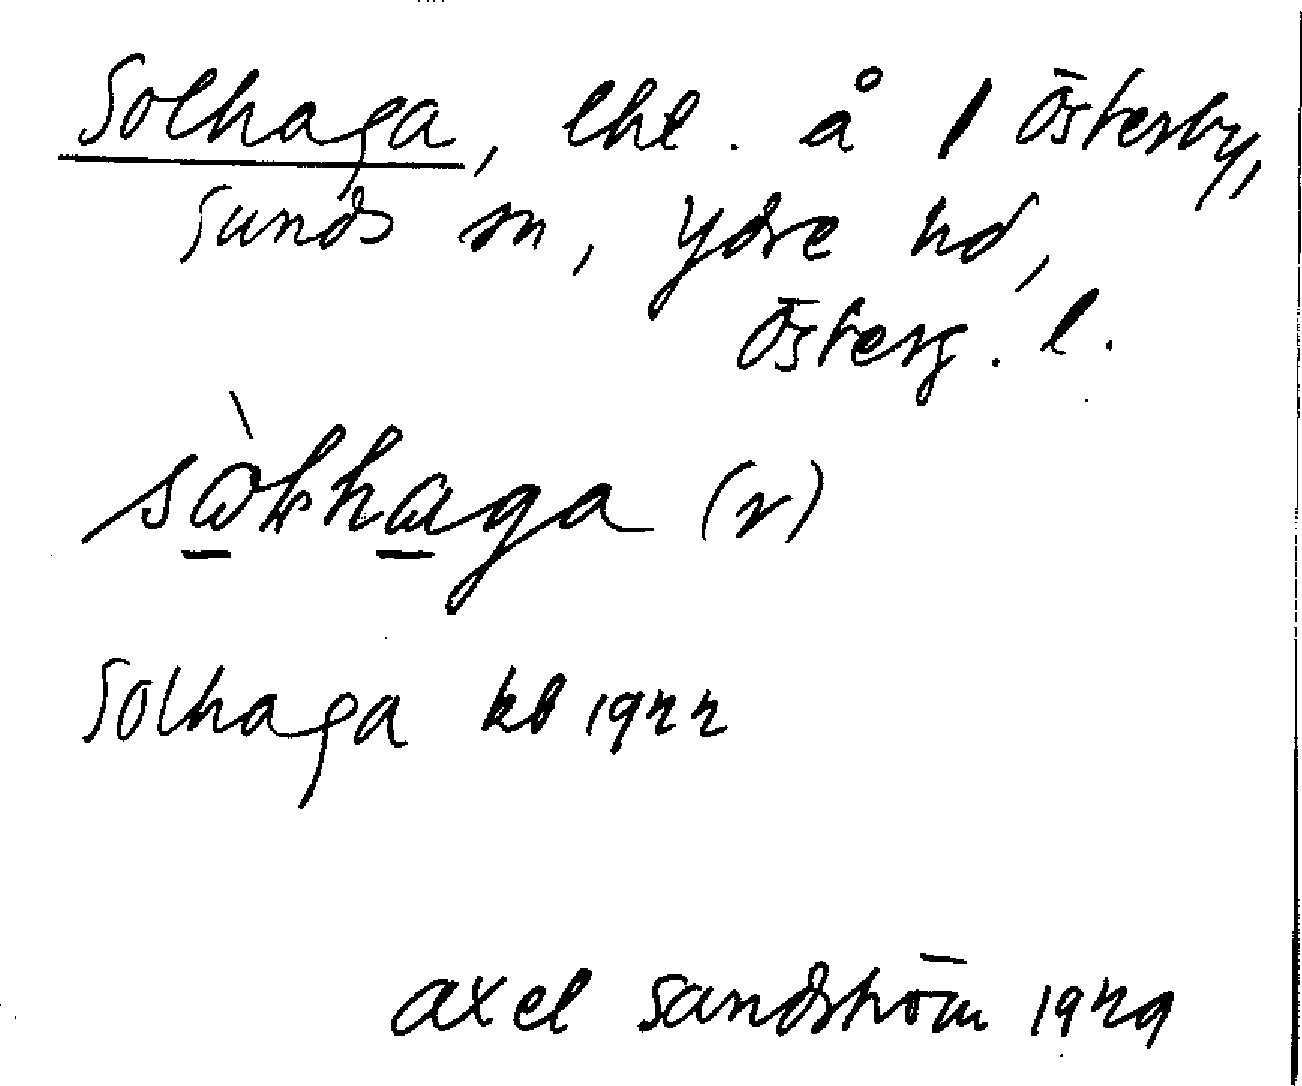 Solhaga, lht. å 1 Österby,
Sunds sn, Ydre hd,
Österg. l.
(r)
Solhaga kb 1922
Axel Sandström 1929